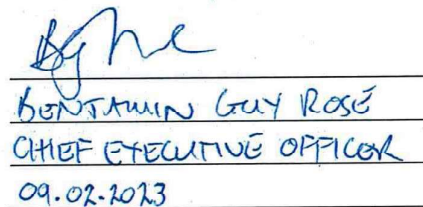 BENJAMIN GUY ROSE
CHIEF EXECUTIVE OFFICER
09.02.2023